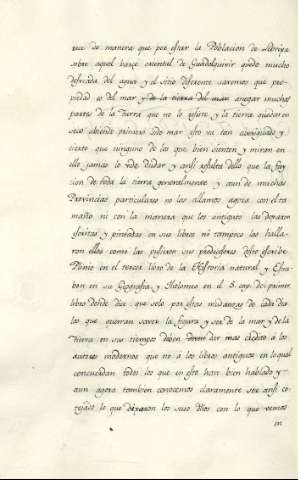 de manera que por estar la Poblacion de Lebrija
sobre aquel braço oriental de Guadalquivir quedo mucho
del agua y el sitio diferente queremos que pro-
piedad es del mar y de la tierra del mar anegar muchas
partes de la tierra que no le resiste y la tierra quedar en
seco donde primero fue mar esto es tan averiguado y
cierto que ninguno de los que bien sienten y miren en
ello jamas lo pudo dudar y ansi resulta dello que la fay
cion de toda la tierra generalmente y aun de muchas
Provincias particulares no las allamos agora con el ta
maño ni con la manera que los antiguos las dexaron
escritas y pintadas en sus libros ni tampoco las halla-
ron ellos como las pusieron sus predecesores desto escribe
Plinio en el tercer libro de la Historia natural y Estra
bon en su Geografia y Ptolomeo en el 5. cap. del primer
libro donde dice que solo por estas mudanzas de cada dia
los que quieran saver la figura y ser de la mar y de la
tierra en sus tiempos deven dar mas credito a los
autores modernos que no a los libros antiguos en lo qual
concuerdan todos los que en esto han bien hablado y
aun agora tambien conocemos claramente ser ansi co
tejado lo que dexaron los suso dichos con lo que vemos
en